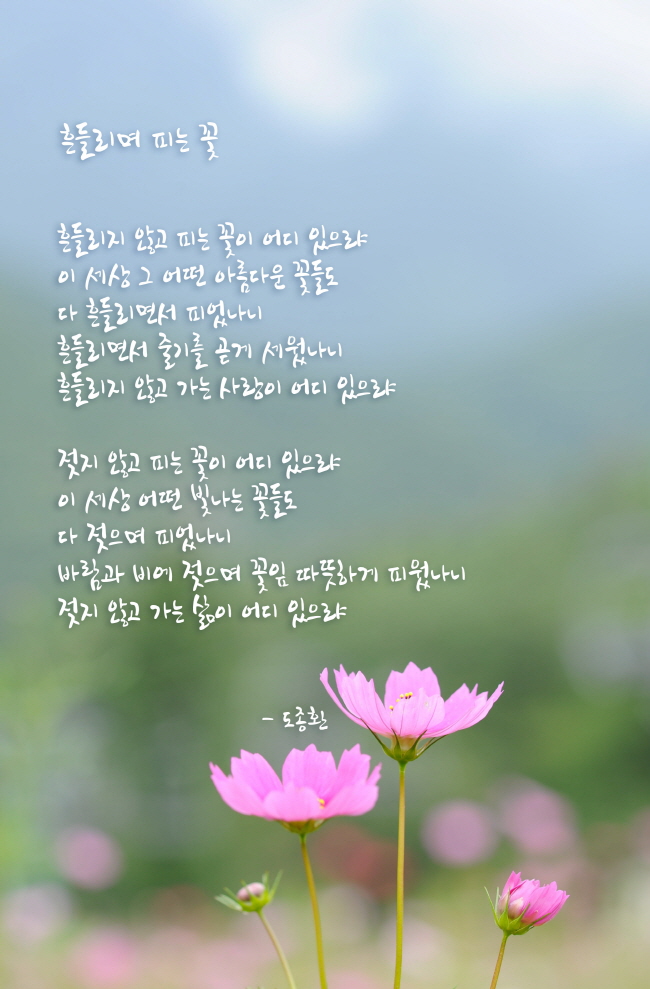 흔들리며 피는 꽃
흔들리지 않고 피는 꽃이 어디 있으랴
이 세상 그 어떤 아름다운 꽃들도
다 흔들리면서 피었나니
흔들리면서 줄기를 곧게 세웠나니
흔들리지 않고 가는 사랑이 어디 있으랴
젖지 않고 피는 꽃이 어디 있으랴
이 세상 어떤 빛나는 꽃들도
다 젖으며 피었나니
바람과 비에 젖으며 꽃잎 따뜻하게 피웠나니
젖지 않고 가는 삶이 어디 있으랴
- 도종환